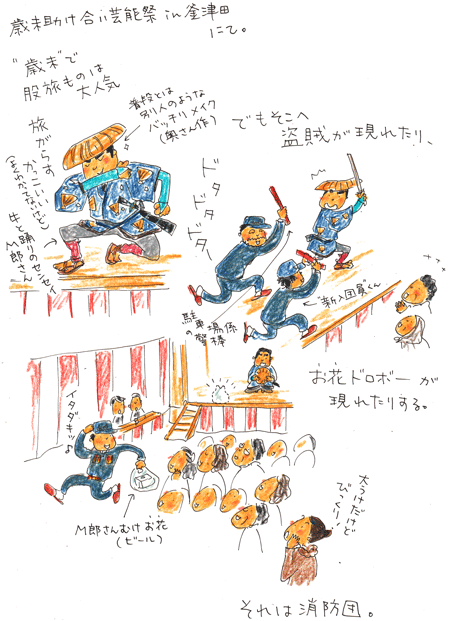 歳末助け合い芸能祭 in 釜津田
にて。
"歳末"で
股旅ものは
大人気
普段とは
別人のような
バッチリメイク
(奥さん作)
旅がらす
かっこいいけど
牛と踊りのセンセイ
M郎さん
でもそこへ
盗賊が現れたり、
ドタ
ドタ
ドター
新入団員くん
駐車場係
の警棒
お花ドロボーが
現れたりする。
イタダキッ♪
M郎さんむけお花
(ビール)
大うけだけど
びっくり!
それは消防団。